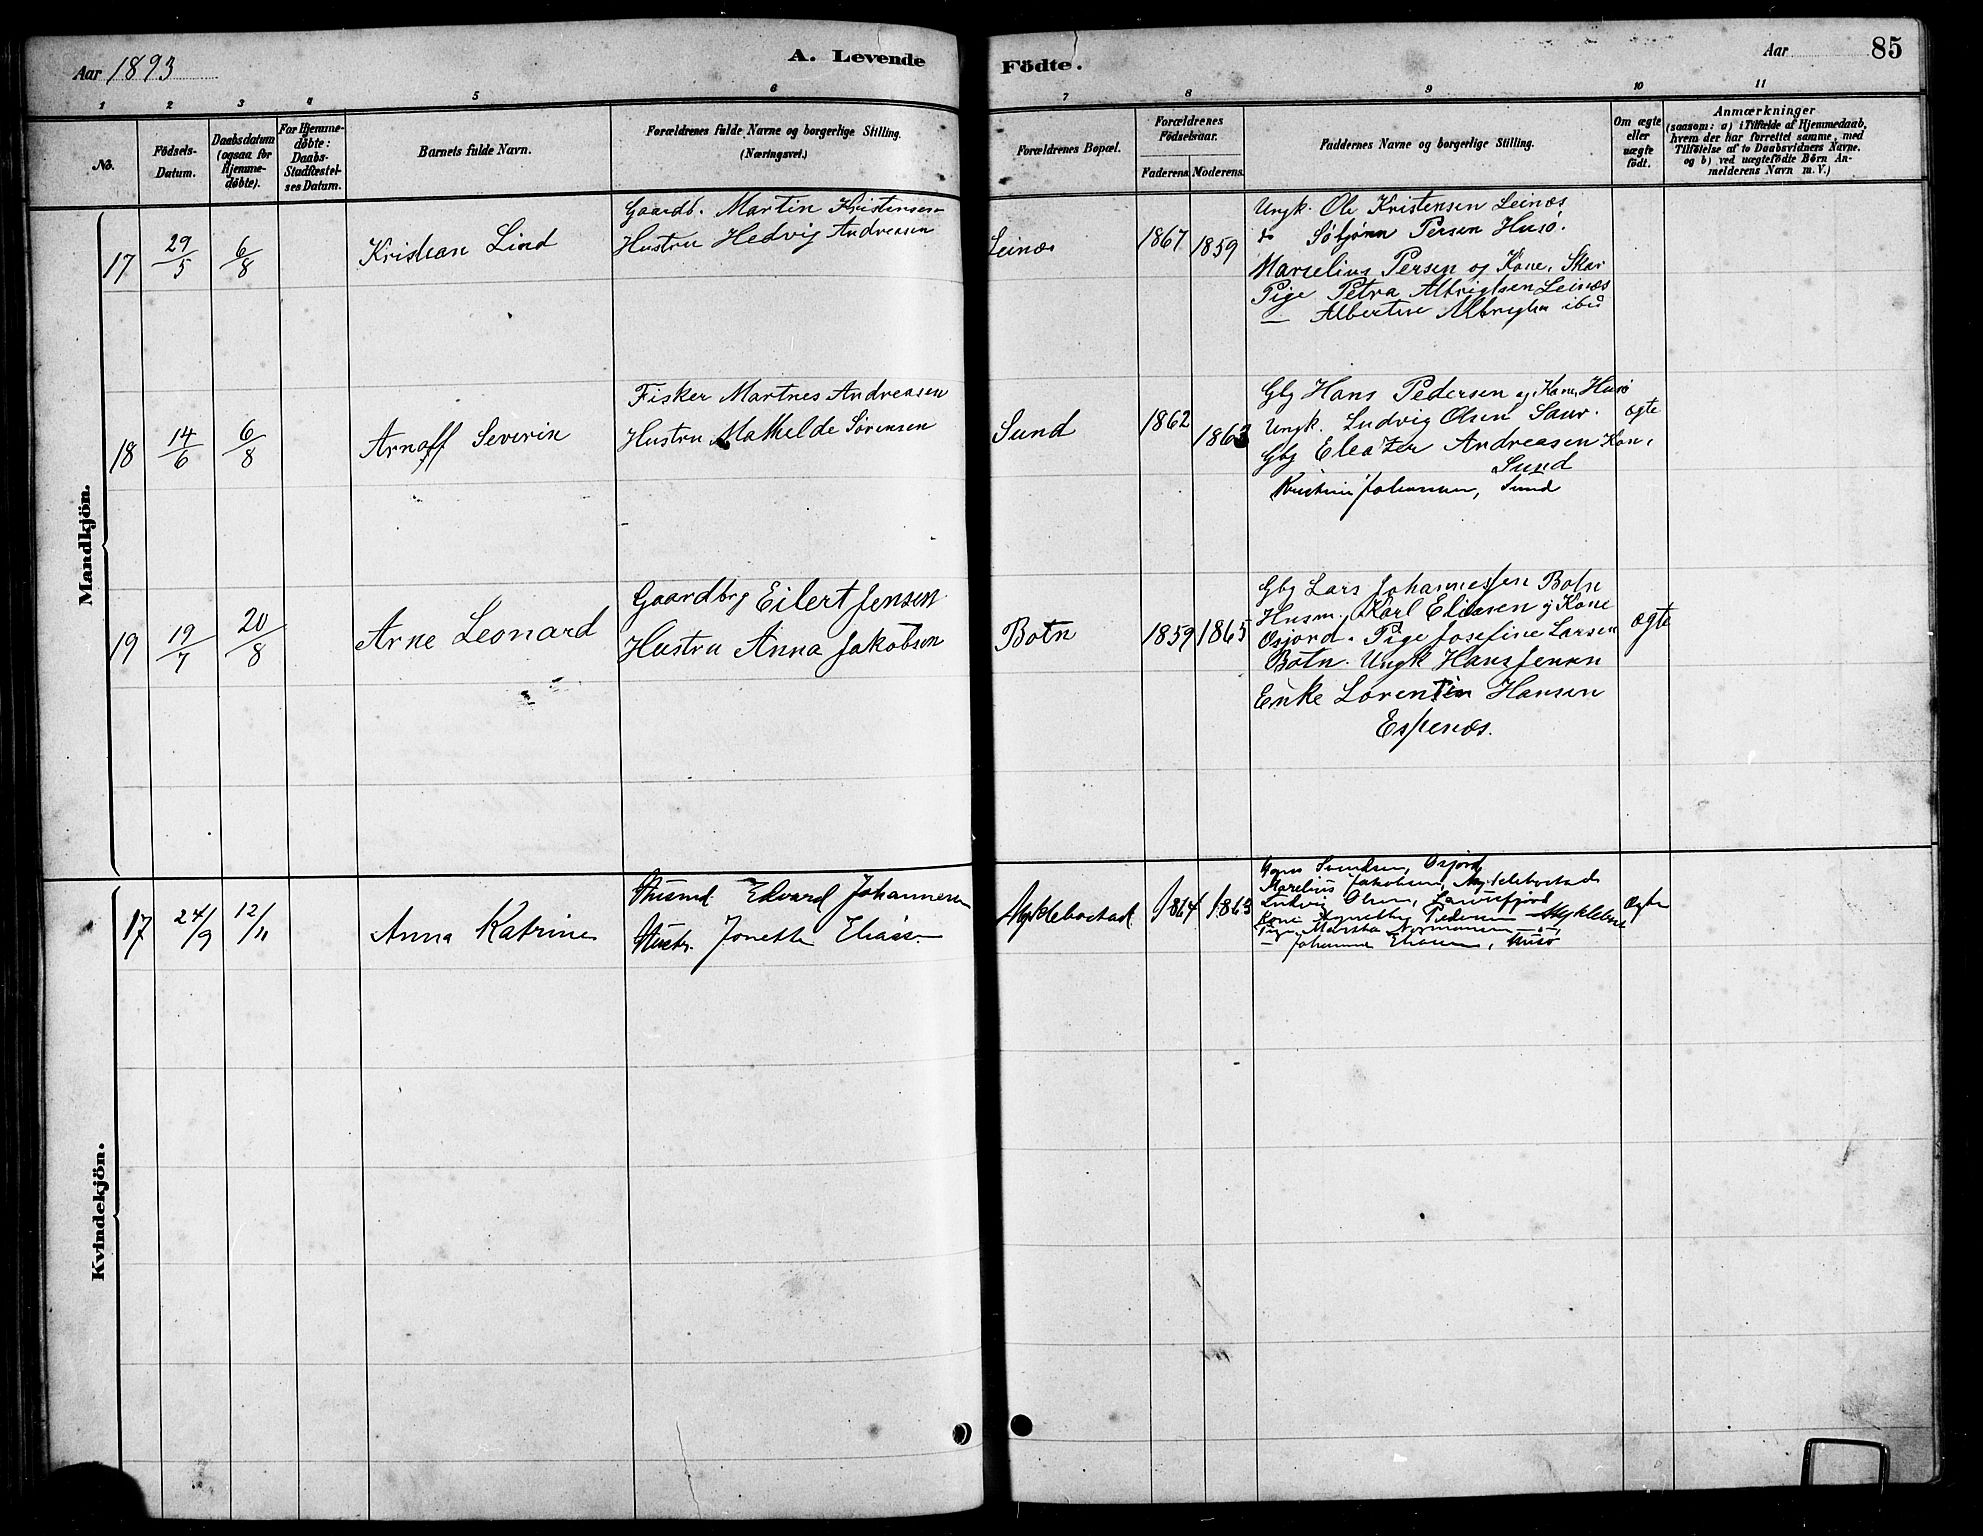 Aar 1893
A. Levende Födte.
Aar 85
1 2 3 4 5 6 7 8 9 10 11
No.
Födsels-Datum.
Daabsdatum (ogsaa for Hjemme-døbte).
For Hjemme-døbte: Daabs-Stadfæstel-ses Datum.
Barnets fulde Navn.
Forældrenes fulde Navne og borgerlige Stilling. (Næringsvei.)
Forældrenes Bopæl.
Forældrenes Födselsaar.
Faderens. Moderens.
Faddernes Navne og borgerlige Stilling.
Om ægte eller uægte födt.
Anmærkninger
(saasom: a) i Tilfælde af Hjemmedaab,
hvem der har forrettet samme, med
Tilföielse af to Daabsvidners Navne.
og b) ved uægtefödte Börn An-
melderens Navn m. V.)
Mandkjön.
17 29/5 6/8 Kristian Lind
Gaardb. Martin Kristensen
Hustru Hedvig Andreasen
Leinæs 1867 1859
Ungk. Ole Kristensen Leinæs
do Søbjønn Persen Husö.
Marselius Persen og Kone, Skar
Pige Petra Albrigtsen Leinæs
— Albertine Albrigtsen ibd
18 14/6 6/8 Arnoff Severin
Fisker Martnes Andreasen
Hustru Mathelde Sørensen
Sund 1862 1863
Gbg Hans Pedersen og Kone, Husö
Ungk. Ludvig Olsen Saur.
Gbg Eleazer Andreasen Kone
Sund
Kristine Johansen, Sund
ægte
19 19/7 20/8 Arne Leonard
Gaardbrg Eilert Jensen
Hustru Anna Jakobsen
Botn 1859 1865
Gbg Lars Johannessen Botn
Husm. Karl Eliasen og Kone
Osjord. Pige Josefine Larsen
Botn. Ungk Hans Jensen
Enke Lorentin Hansen
Espenæs.
ægte
Kvindekjön.
17 24/9 12/11 Anna Katrine
Husmd. Edvard Johannesen
Hustr. Jonette Eliass.
Myklebostad 1864 1863
Svendsen, Osjord
Marelius Jakobsen, Myklebostad
Ludvig Olsen,
Kone Pedersen Myklebost
Pige Normansen
— Johanna Eliasen, Husö
Ægte